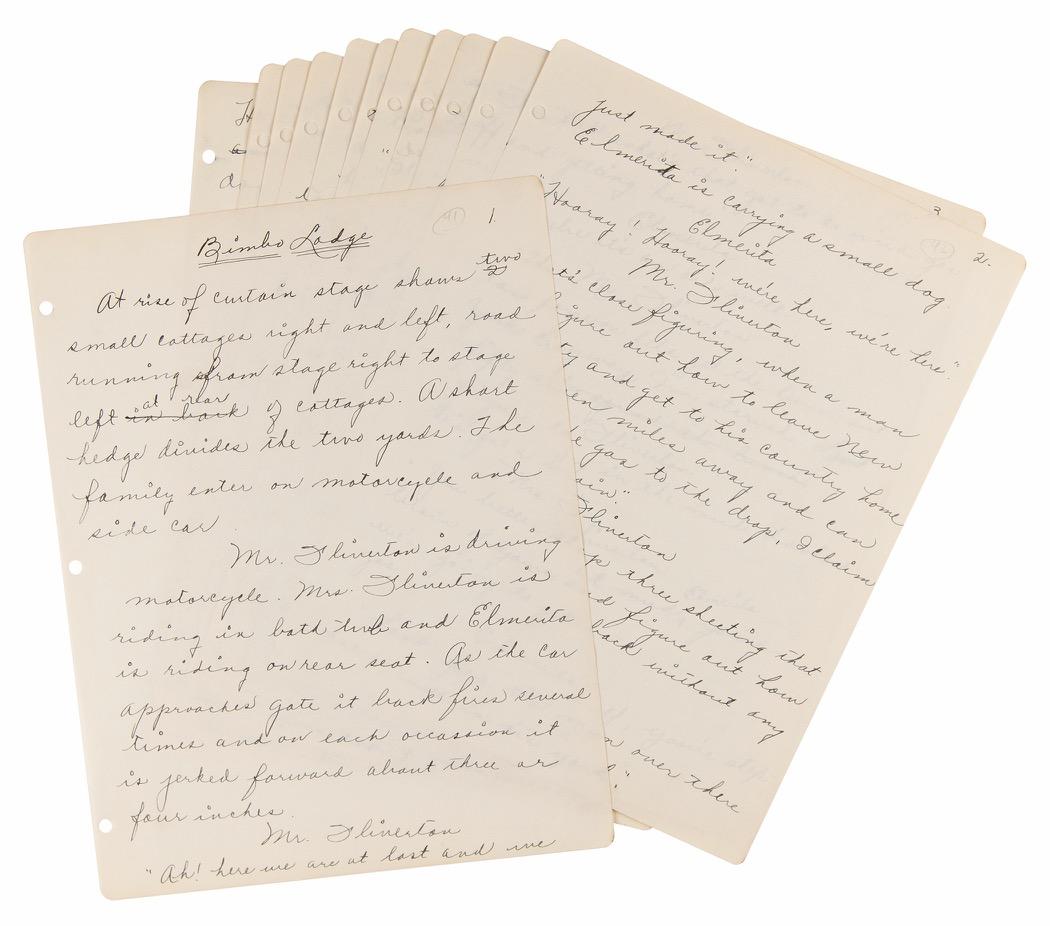 41
1.
Bimbo Lodge
At rise of curtain stage shows two
2
small cottages right and left, road
running from stage right to stage
at rear
left in back of cottages. A short
hedge divides the two yards. The
family enter on motorcycle and
side car
Mr. Flinerton is driving
motorcycle. Mrs. Flinerton is
riding in bath tub and Elmerita
is riding on rear seat. As the car
approaches gate it back fires several
times and on each occassion it
is jerked forward about three or
four inches.
Mr. Flinerton
"Ah! here we are at last and we
2.
just made it"
Elmerita is carrying a small dog
Elmerita
"Hooray! Hooray! we're here, we're here."
Mr. Flinerton
close figuring, when a man
figure out how to leave New
and get to his country home
miles away and can
gas to the drop, I claim
Flinerton
three sheeting that
figure out how
back without any
over there
3